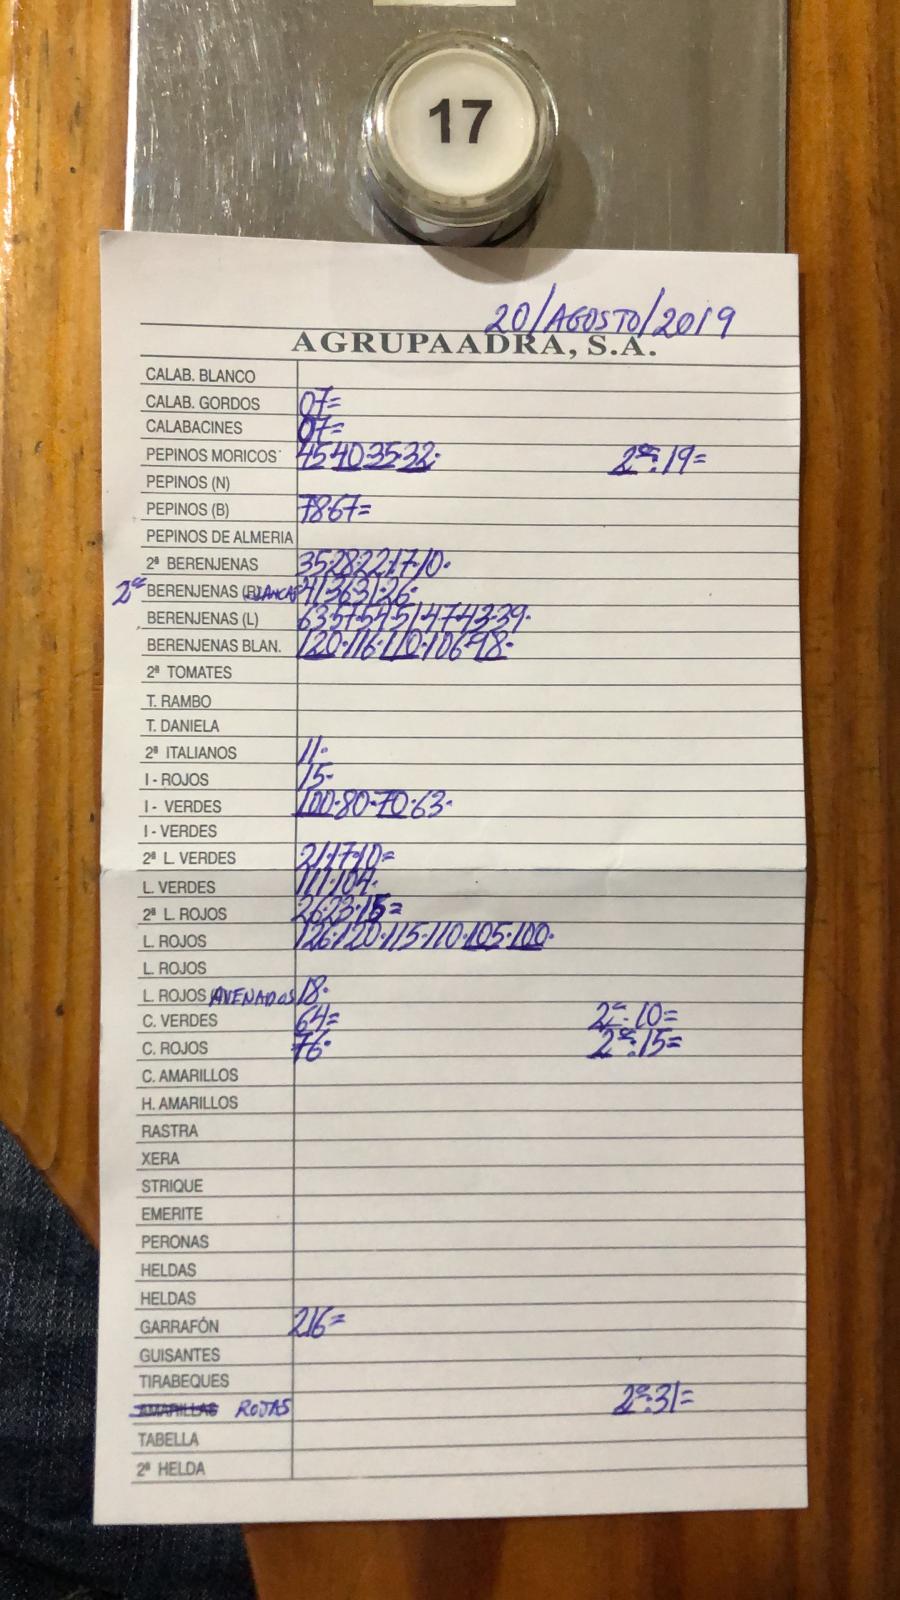 17
20/AGOSTO/2019
AGRUPAADRA, S.A.
CALAB. BLANCO
CALAB. GORDOS 07=
CALABACINES 07=
PEPINOS MORICOS 45·40·35·32· 2as:19=
PEPINOS (N)
PEPINOS (B) 78·67=
PEPINOS DE ALMERIA
2ª BERENJENAS 35·28·22·17·10·
2as BERENJENAS (BLANCAS 41·36·31·26·
BERENJENAS (L) 63·57·54·51·47·43·39·
BERENJENAS BLAN. 120·116·110·106·98·
2ª TOMATES
T. RAMBO
T. DANIELA
2ª ITALIANOS 11·
I - ROJOS 15·
I - VERDES 100·80·70·63·
I - VERDES
2ª L. VERDES 21·17·10=
L. VERDES 111·104·
2ª L. ROJOS 26·23·15=
L. ROJOS 126·120·115·110·105·100·
L. ROJOS
L. ROJOS AVENADOS 18·
C. VERDES 64= 2as:10=
C. ROJOS 76· 2as:15=
C. AMARILLOS
H. AMARILLOS
RASTRA
XERA
STRIQUE
EMERITE
PERONAS
HELDAS
HELDAS
GARRAFÓN 216=
GUISANTES
TIRABEQUES
AMARILLAS ROJAS 2as:31=
TABELLA
2ª HELDA